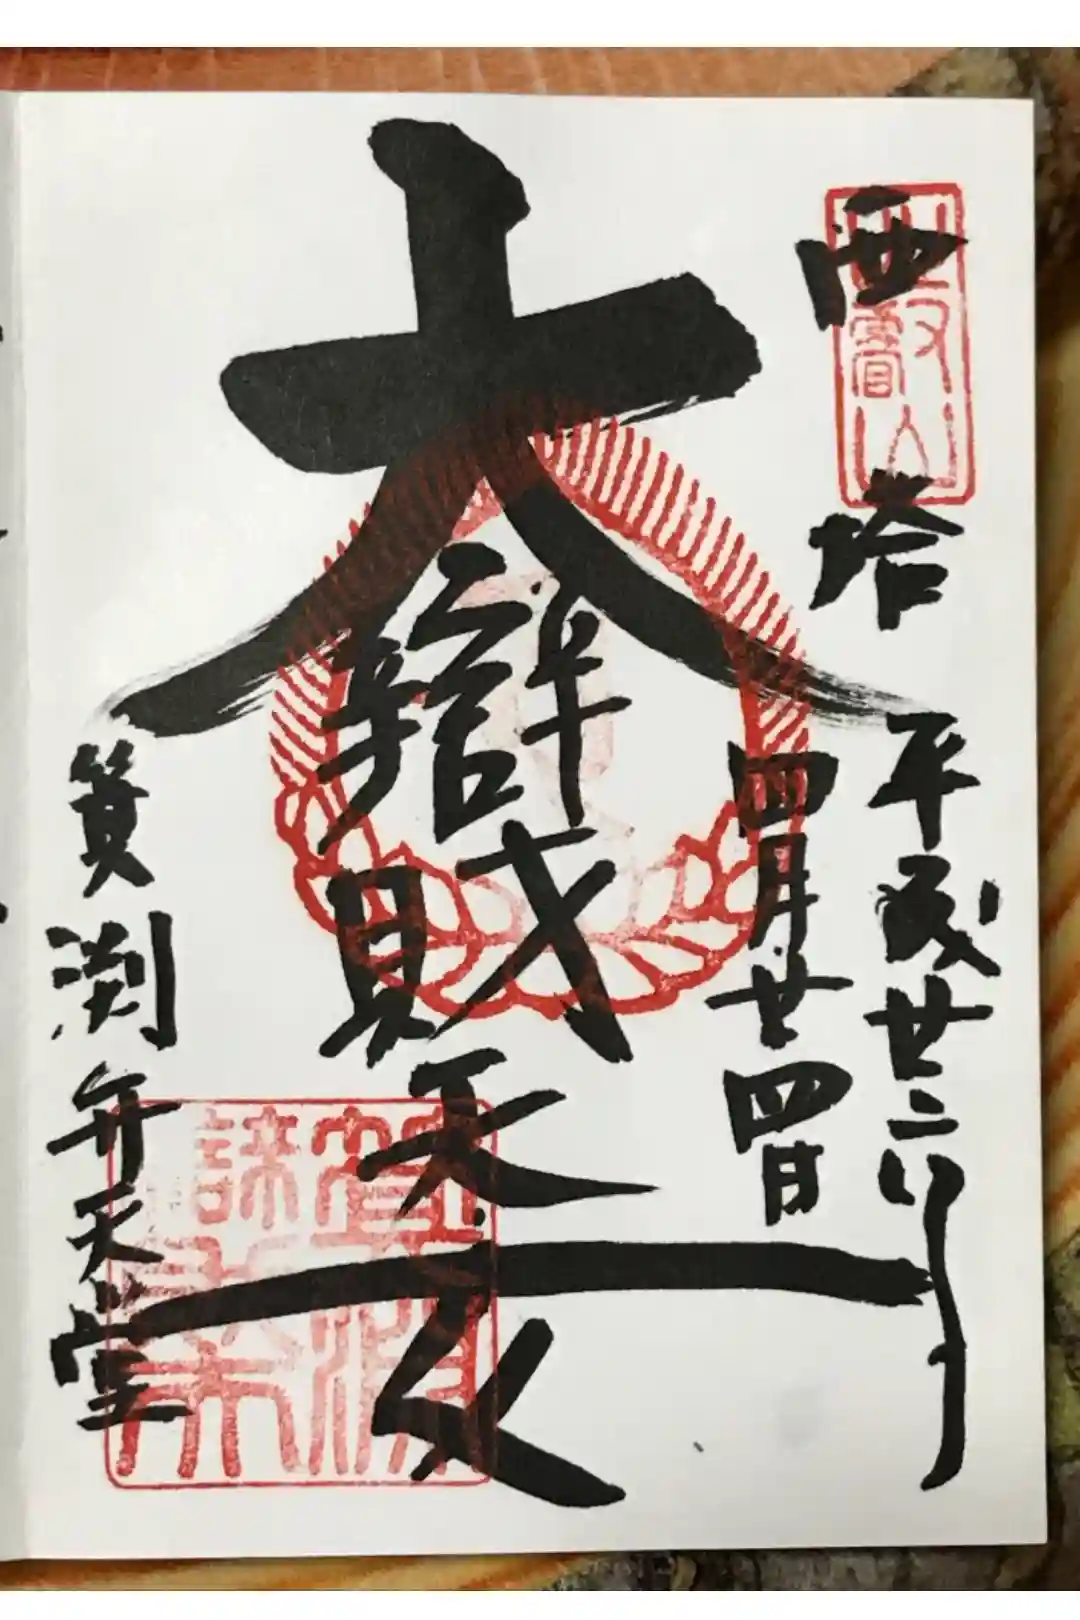 比叡山
西塔
平成廿二年
四月廿四日
大辯財天女
箕渕弁天堂